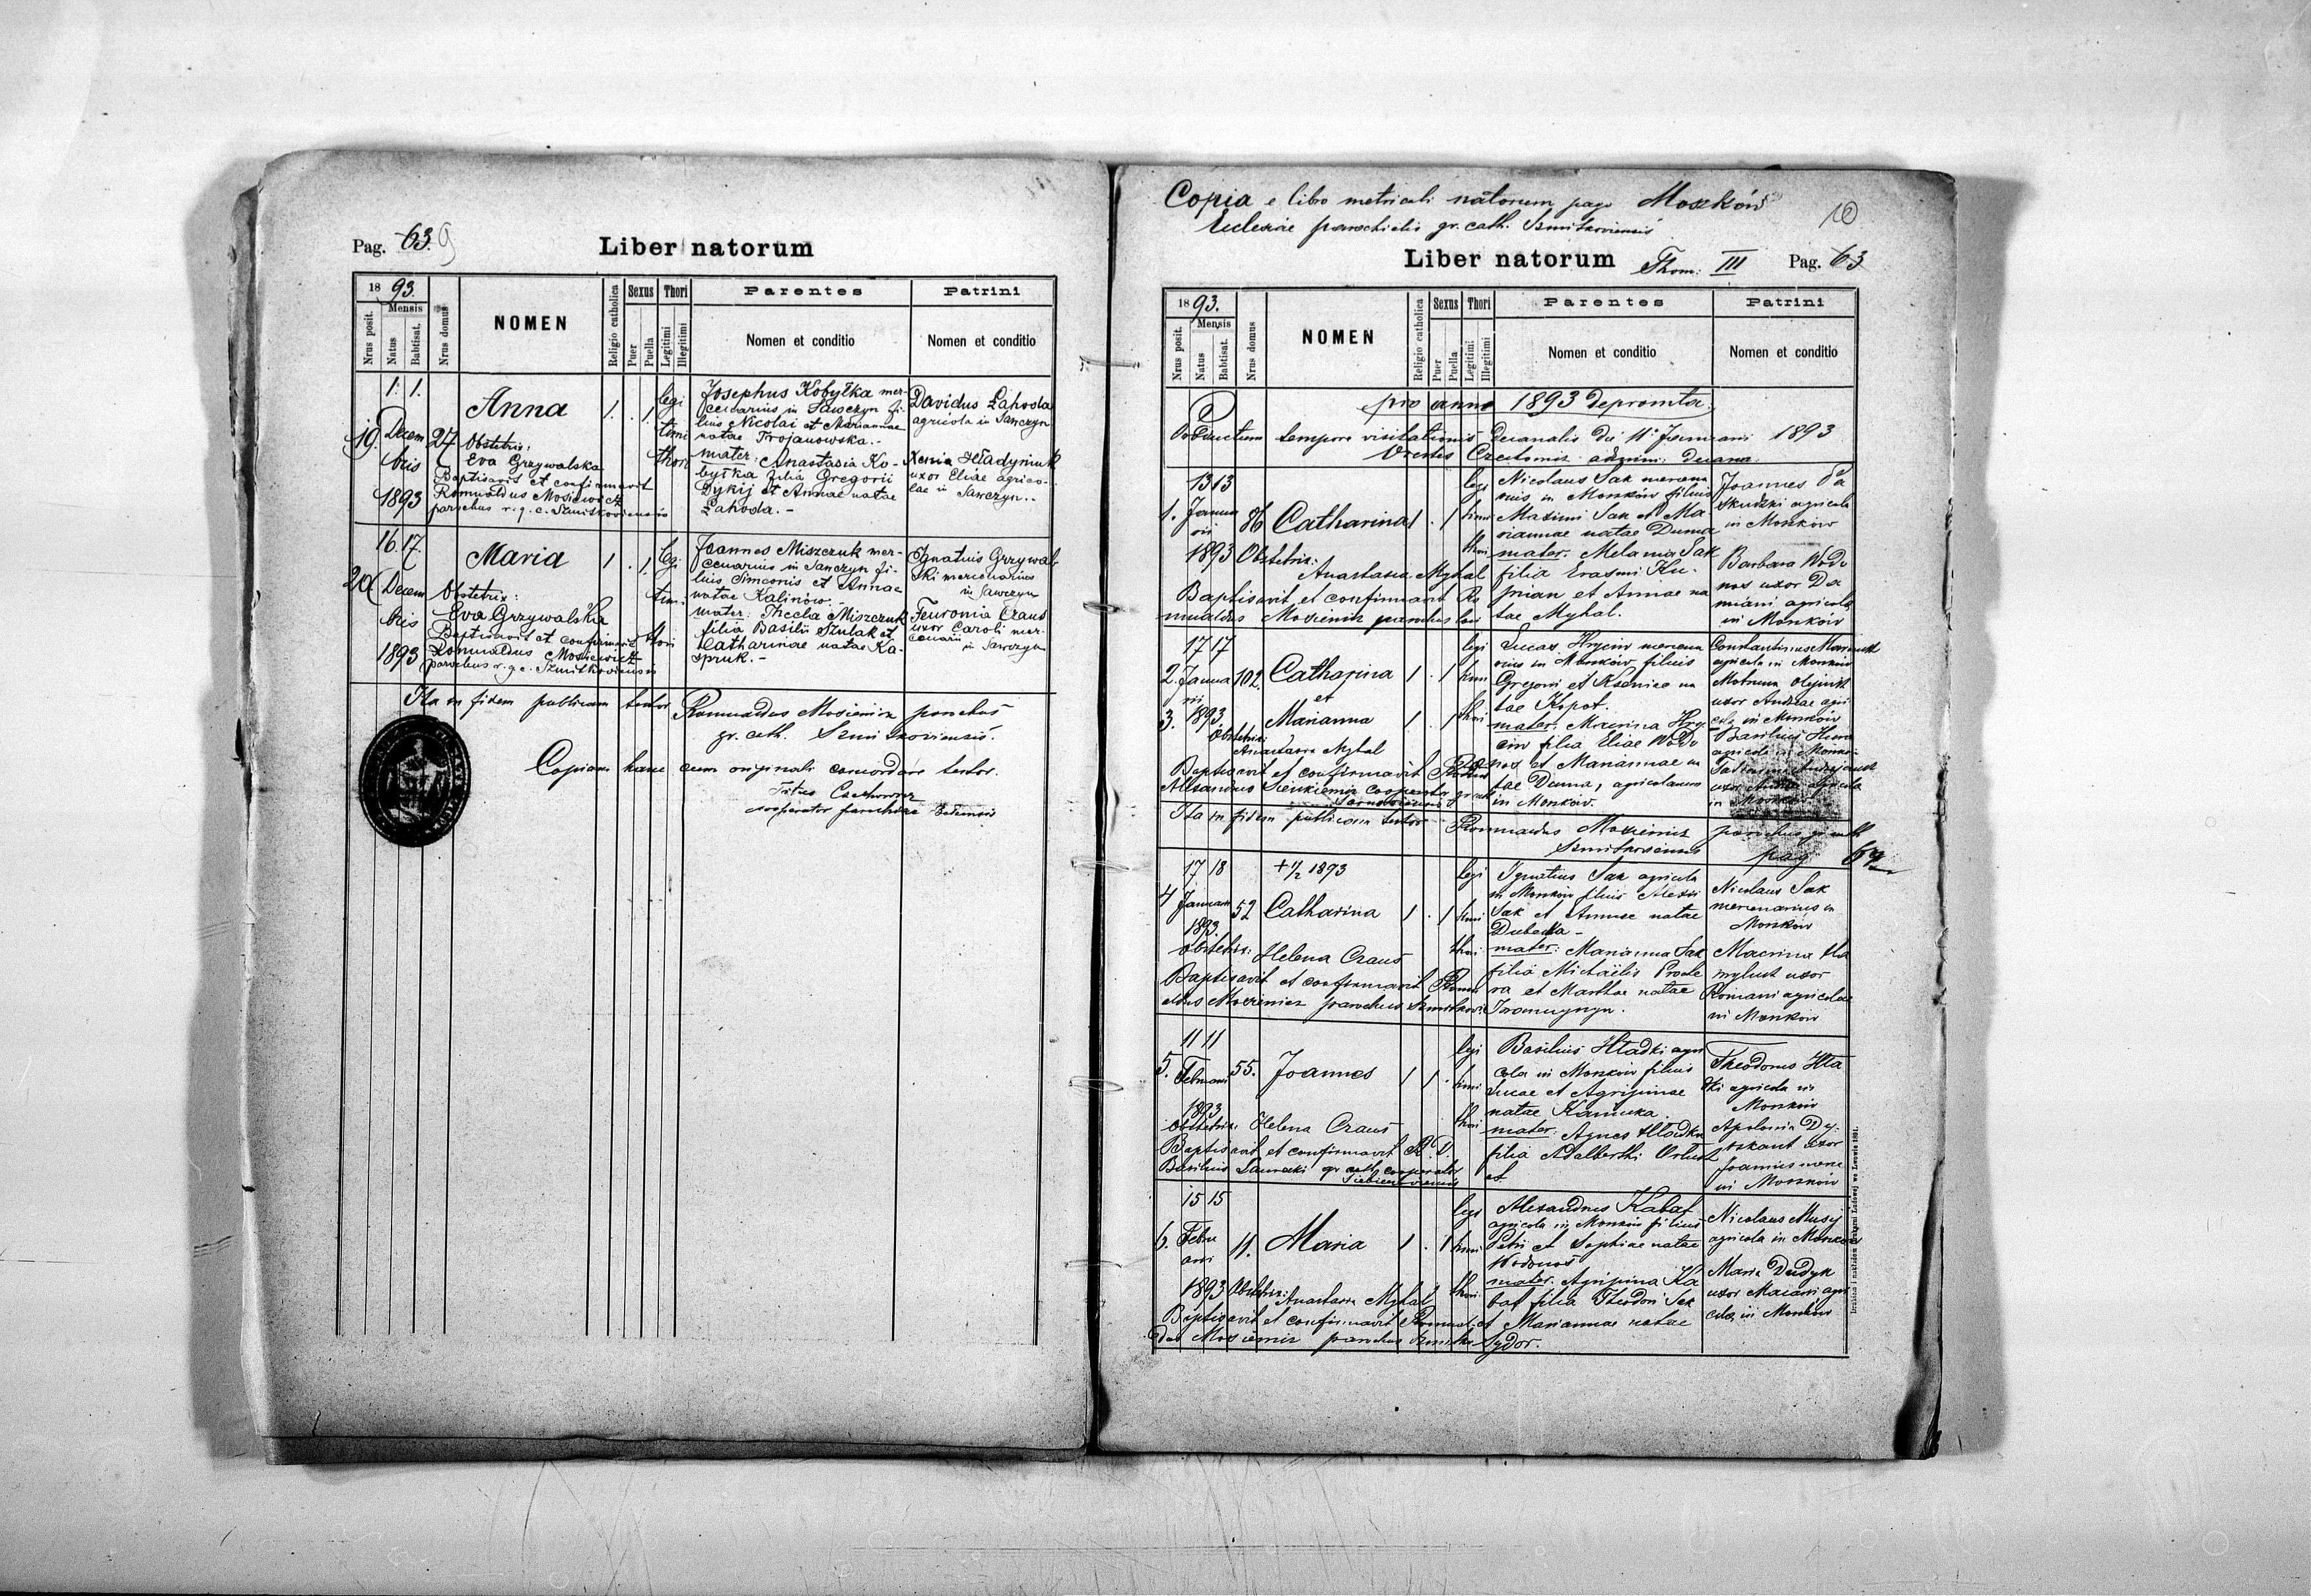 Pag. 63. 9
Liber natorum
1893.
Mensis
Nrus posit.
Natus
Babtisat.
Nrus domus
NOMEN
Religio catholica
Sexus
Puer
Puella
Thori
Legitimi
Illegitimi
Parentes
Nomen et conditio
Patrini
Nomen et conditio
19.
1. 1.
Decem
bris
1893
27
Anna
Obstetrix:
Eva Grzywalska
Baptisavit et confirmavit
Romualdus Mosiewicz
parochus r. g. c. Szmitkoviensis
1. . 1.
legi
timi
thori
Josephus Kobyłka mer-
cenarius in Sawczyn fi-
lius Nicolai et Mariannae
natae Trojanowska.-
mater: Anastasia Ko-
byłka filia Gregorii
Dykij et Annae natae
Lahoda.-
Davidus Lahoda
agricola in Sawczyn
Xenia Hładyniuk
uxor Eliae agrico-
lae in Sawczyn..
20
16. 17.
Decem
bris
1893
Maria
Obstetrix:
Eva Grzywalska
Baptisavit et confirmavit
Romualdus Mosiewicz
parochus r. g. c. Szmitkoviensis
1 . 1.
legi
timi
thori
Joannes Miszczuk mer-
cenarius in Sawczyn fi-
lius Simeonis et Annae
natae Kalinów.-
mater: Thecla Miszczuk
filia Basilii Szulak et
Catharinae natae Ka-
spruk.-
Ignatius Grzywal-
ski mercenarius
in Sawczyn
Feuronia Craus
uxor Caroli mer-
cenarii
in Sawczyn
Ita in fidem publicam testor Romualdus Mosiewicz parochus
gr. cath. Szmitkoviensis.
Copiam hanc cum originali concordare testor.
Titus
cooperator parochiae
Copia e libro metricali natorum pago Moszków
Ecclesiae parochialis gr. cath. Szmitkoviensis
10
Liber natorum Thom: III Pag. 63
1893.
Mensis
Nrus posit.
Natus
Babtisat.
Nrus domus
NOMEN
Religio catholica
Sexus
Puer
Puella
Thori
Legitimi
Illegitimi
Parentes
Nomen et conditio
Patrini
Nomen et conditio
pro anno 1893 depromta.
Productum tempore visitationis decanalis die 11 Januarii 1893
Orestes
1.
13 13
Janua
rii
1893
86
Catharina
Obstetrix:
Anastasia Myhal
Baptisavit et confirmavit Ro
mualdus Mosiewicz parochus
1 . 1
legi
timi
thori
Nicolaus Sak mercena
rius in Moszków filius
Maximi Sak et Ma
riannae natae Duma
mater: Melania Sak
filia Erasmi Ku-
prian et Annae na
tae Myhal.
Joannes
agricola
in Moszków
Barbara Wodo
nos uxor Da
miani agricola
in Moszków
2.
3.
17 17
Janua
rii
1893
102.
Catharina
et
Marianna
Obstetrix:
Anastasia Myhal
Baptisavit et confirmavit
Alexandrus Sienkiewicz cooperator gr. cath.
1 . 1
1 . 1
legi
timi
thori
Lucas Hryciw mercena
rius in Moszków filius
Gregorii et Kseniae na
tae Kopot.
mater: Macrina Hry
ciw filia Eliae Wodo
nos et Mariannae na
tae Duma, agricolarum
in Moszków.
Constantinus
agricola in Moszków
uxor Andreae agri
cola in Moszków
Basilius
agricola in Moszków
Ita in fidem publicam testor Romualdus Mosiewicz parochus gr. cath
Szmitkoviensis
pag 64
4
17 18
Januarii
1893.
52
+ 4/2 1893
Catharina
Obstetrix: Helena Craus
Baptisavit et confirmavit Romu
aldus Mosiewicz parochus Szmitkovi
1 . 1
legi
timi
thori
Ignatius Sak agricola
in Moszków filius Alexii
Sak et Annae natae
Dubecka -
mater: Marianna Sak
filia Michaëlis
ra et Marthae natae
Nicolaus Sak
mercenarius in
Moszków
Macrina
uxor
Romani agricolae
in Moszków
5.
11 11
Februarii
1893
55.
Joannes
Obstetrix: Helena Craus
Baptisavit et confirmavit R. D.
Basilius gr. cath. cooperator
1 1 .
legi
timi
thori
Basilius Hładki agri
cola in Moszków filius
Lucae et Agripinae
natae Kamuka.
mater: Agnes Hładka
filia Adalberthi
Theodorus Hła
dki agricola in
Moszków
Apolonia
uxor
Joannis merc
in Moszków
6.
15 15
Febru
arii
1893
11.
Maria
Obstetrix:
Anastasia Myhal
Baptisavit et confirmavit Romual
dus Mosiewicz parochus Szmitko
1 . 1
legi
timi
thori
Alexandrus Kabat
agricola in Moszków filius
Petri et Sophiae natae
Wodonos
mater: Agripina Ka
bat filia Theodori Sak
et Mariannae natae
Sydor.
Nicolaus Musij
agricola in Moszków
Maria Dudyk
uxor agri
cola in Moszków